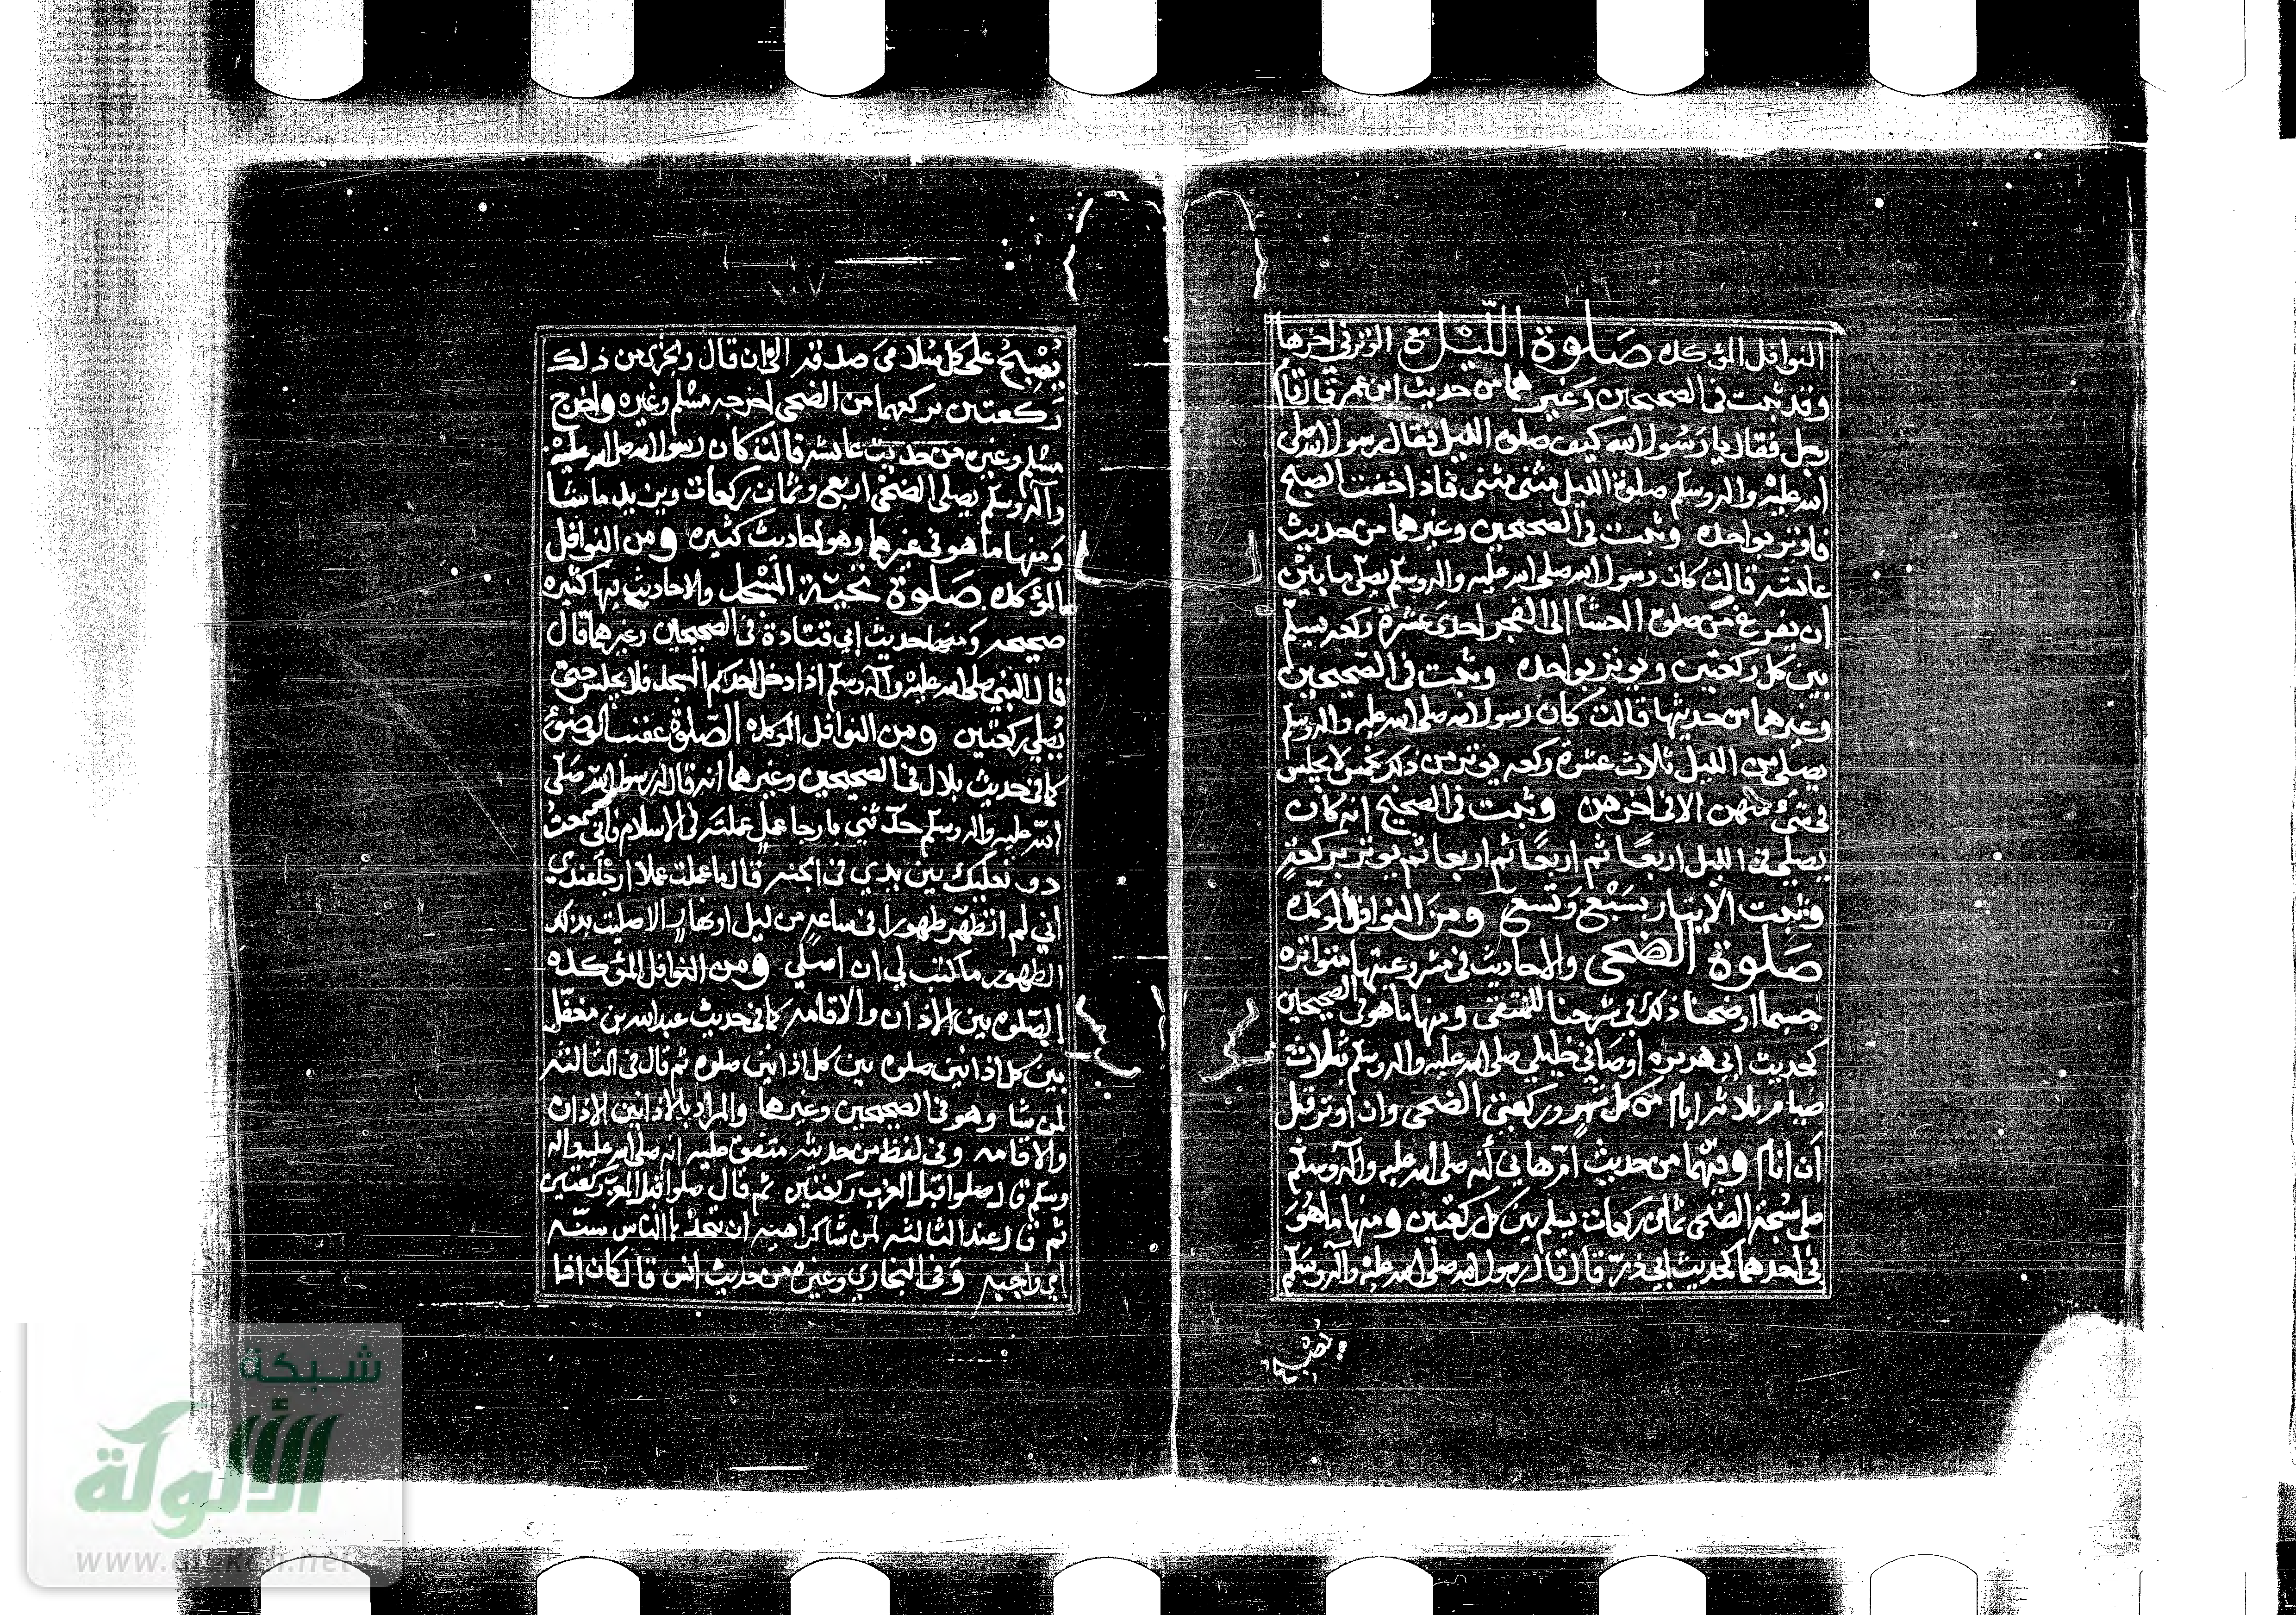 ١٠٦
النوافل المؤكده صلوة الليل مع الوتر في اخرها
وقد ثبت في الصحيحين وغيرهما من حديث ابن عمر قال قام
رجل فقال يا رسول الله كيف صلوة الليل فقال رسول الله صلى
الله عليه واله وسلم صلوة الليل مثنى مثنى فاذا خفت الصبح
فاوتر بواحده وثبت في الصحيحين وغيرهما من حديث
عائشه قالت كان رسول الله صلى الله عليه واله وسلم يصلي ما بين
ان يفرغ من صلوة العشا الى الفجر احدى عشرة ركعه يسلم
بين كل ركعتين ويوتر بواحده وثبت في الصحيحين
وغيرهما من حديثها قالت كان رسول الله صلى الله عليه واله وسلم
يصلي من الليل ثلاث عشرة ركعه يوتر من ذلك بخمس لا يجلس
في شيء منهن الا في اخرهن وثبت في الصحيح انه كان
يصلي في الليل اربعا ثم اربعا ثم اربعا ثم يوتر بركعة
وثبت الايتار بسبع وتسع ومن النوافل المؤكده
صلوة الضحى والاحاديث في مشروعيتها متواتره
حسبما اوضحنا ذلك في شرحنا للمنتقى ومنها ما هو في الصحيحين
كحديث ابي هريره اوصاني خليلي صلى الله عليه واله وسلم بثلاث
صيام ثلاثه ايام من كل شهر وركعتي الضحى وان اوتر قبل
ان انام وفيهما من حديث ام هاني أنه صلى الله عليه وآله وسلم
صلى سبحة الضحى ثمان ركعات يسلم بين كل ركعتين ومنها ما هو
في احدهما كحديث ابي ذر قال قال رسول الله صلى الله عليه وآله وسلم
يصبح
١٠٧
يُصْبحُ على كل سلامى صدقه الى ان قال ويجزي من ذلك
ركعتين يركعهما من الضحى اخرجه مسلم وغيره واخرج
مسلم وغيره من حديث عائشه قالت كان رسول الله صلى الله عليه
وآله وسلم يصلي الضحى اربع وثمان ركعات ويزيد ما شا
ومنها ما هو في غيرها وهو احاديث كثيره ومن النوافل
المؤكده صلوة تحية المسجد والاحاديث فيها كثيره
صحيحه ومنها حديث ابي قتادة في الصحيحين وغيرهما قال
قال النبي صلى الله عليه وآله وسلم اذا دخل احدكم المسجد فلا يجلس حتى
يصلي ركعتين ومن النوافل المؤكده الصلوة عقب الوضوء
كما في حديث بلال في الصحيحين وغيرهما انه قال له رسول الله صلى
الله عليه واله وسلم حدثني بارجا عمل عملته في الاسلام فاني سمعت
دف نعليك بين يدي في الجنه قال ما عملت عملا ارجى عندي
اني لم اتطهر طهورا في ساعة من ليل او نهار الا صليت بذلك
الطهور ما كتب لي ان اصلي ومن النوافل المؤكده
الصلوه بين الاذان والاقامه كما في حديث عبد الله بن مغفل
بين كل اذانين صلوه بين كل اذانين صلوه ثم قال في الثالثه
لمن شا وهو في الصحيحين وغيرها والمراد بالاذانين الاذان
والاقامه وفي لفظ من حديثه متفق عليه انه صلى الله عليه واله
وسلم قال صلوا قبل المغرب ركعتين ثم قال صلوا قبل المغرب ركعتين
ثم قال عند الثالثه لمن شا كراهية ان يتخذها الناس سنه
اي واجبه وفي البخاري وغيره من حديث انس قال كان اذا
شبكة
الألوكة
www.alukah.net